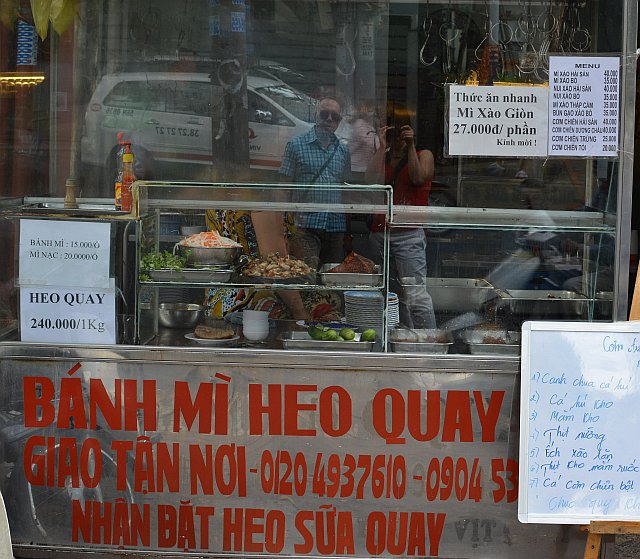 MENU
MÌ XÀO HẢI SẢN 40.000
MÌ XÀO BÒ 35.000
NUI XÀO HẢI SẢN 40.000
NUI XÀO BÒ 35.000
MÌ XÀO THẬP CẨM 35.000
BÚN GẠO XÀO BÒ 35.000
CƠM CHIÊN HẢI SẢN 40.000
CƠM CHIÊN DƯƠNG CHÂU 40.000
CƠM CHIÊN TRỨNG 25.000
CƠM CHIÊN TỎI 20.000
Thức ăn nhanh
Mì Xào Giòn
27.000đ/ phần
Kính mời !
38.27.27.27
BÁNH MÌ : 15.000/Ổ
MÌ NẠC : 20.000/Ổ
HEO QUAY
240.000/1Kg
BÁNH MÌ HEO QUAY
GIAO TẬN NƠI - 0120 4937610 - 0904 53
NHÂN BẶT HEO SỮA QUAY
VỊT
Cơm
1) Canh chua cá hú
2 Cá hú kho
3) Mắm kho
4) Thịt nướng
5) Ếch xào lăn
6) Thịt kho mắm ruốc
7) Cá cơm chiên bột